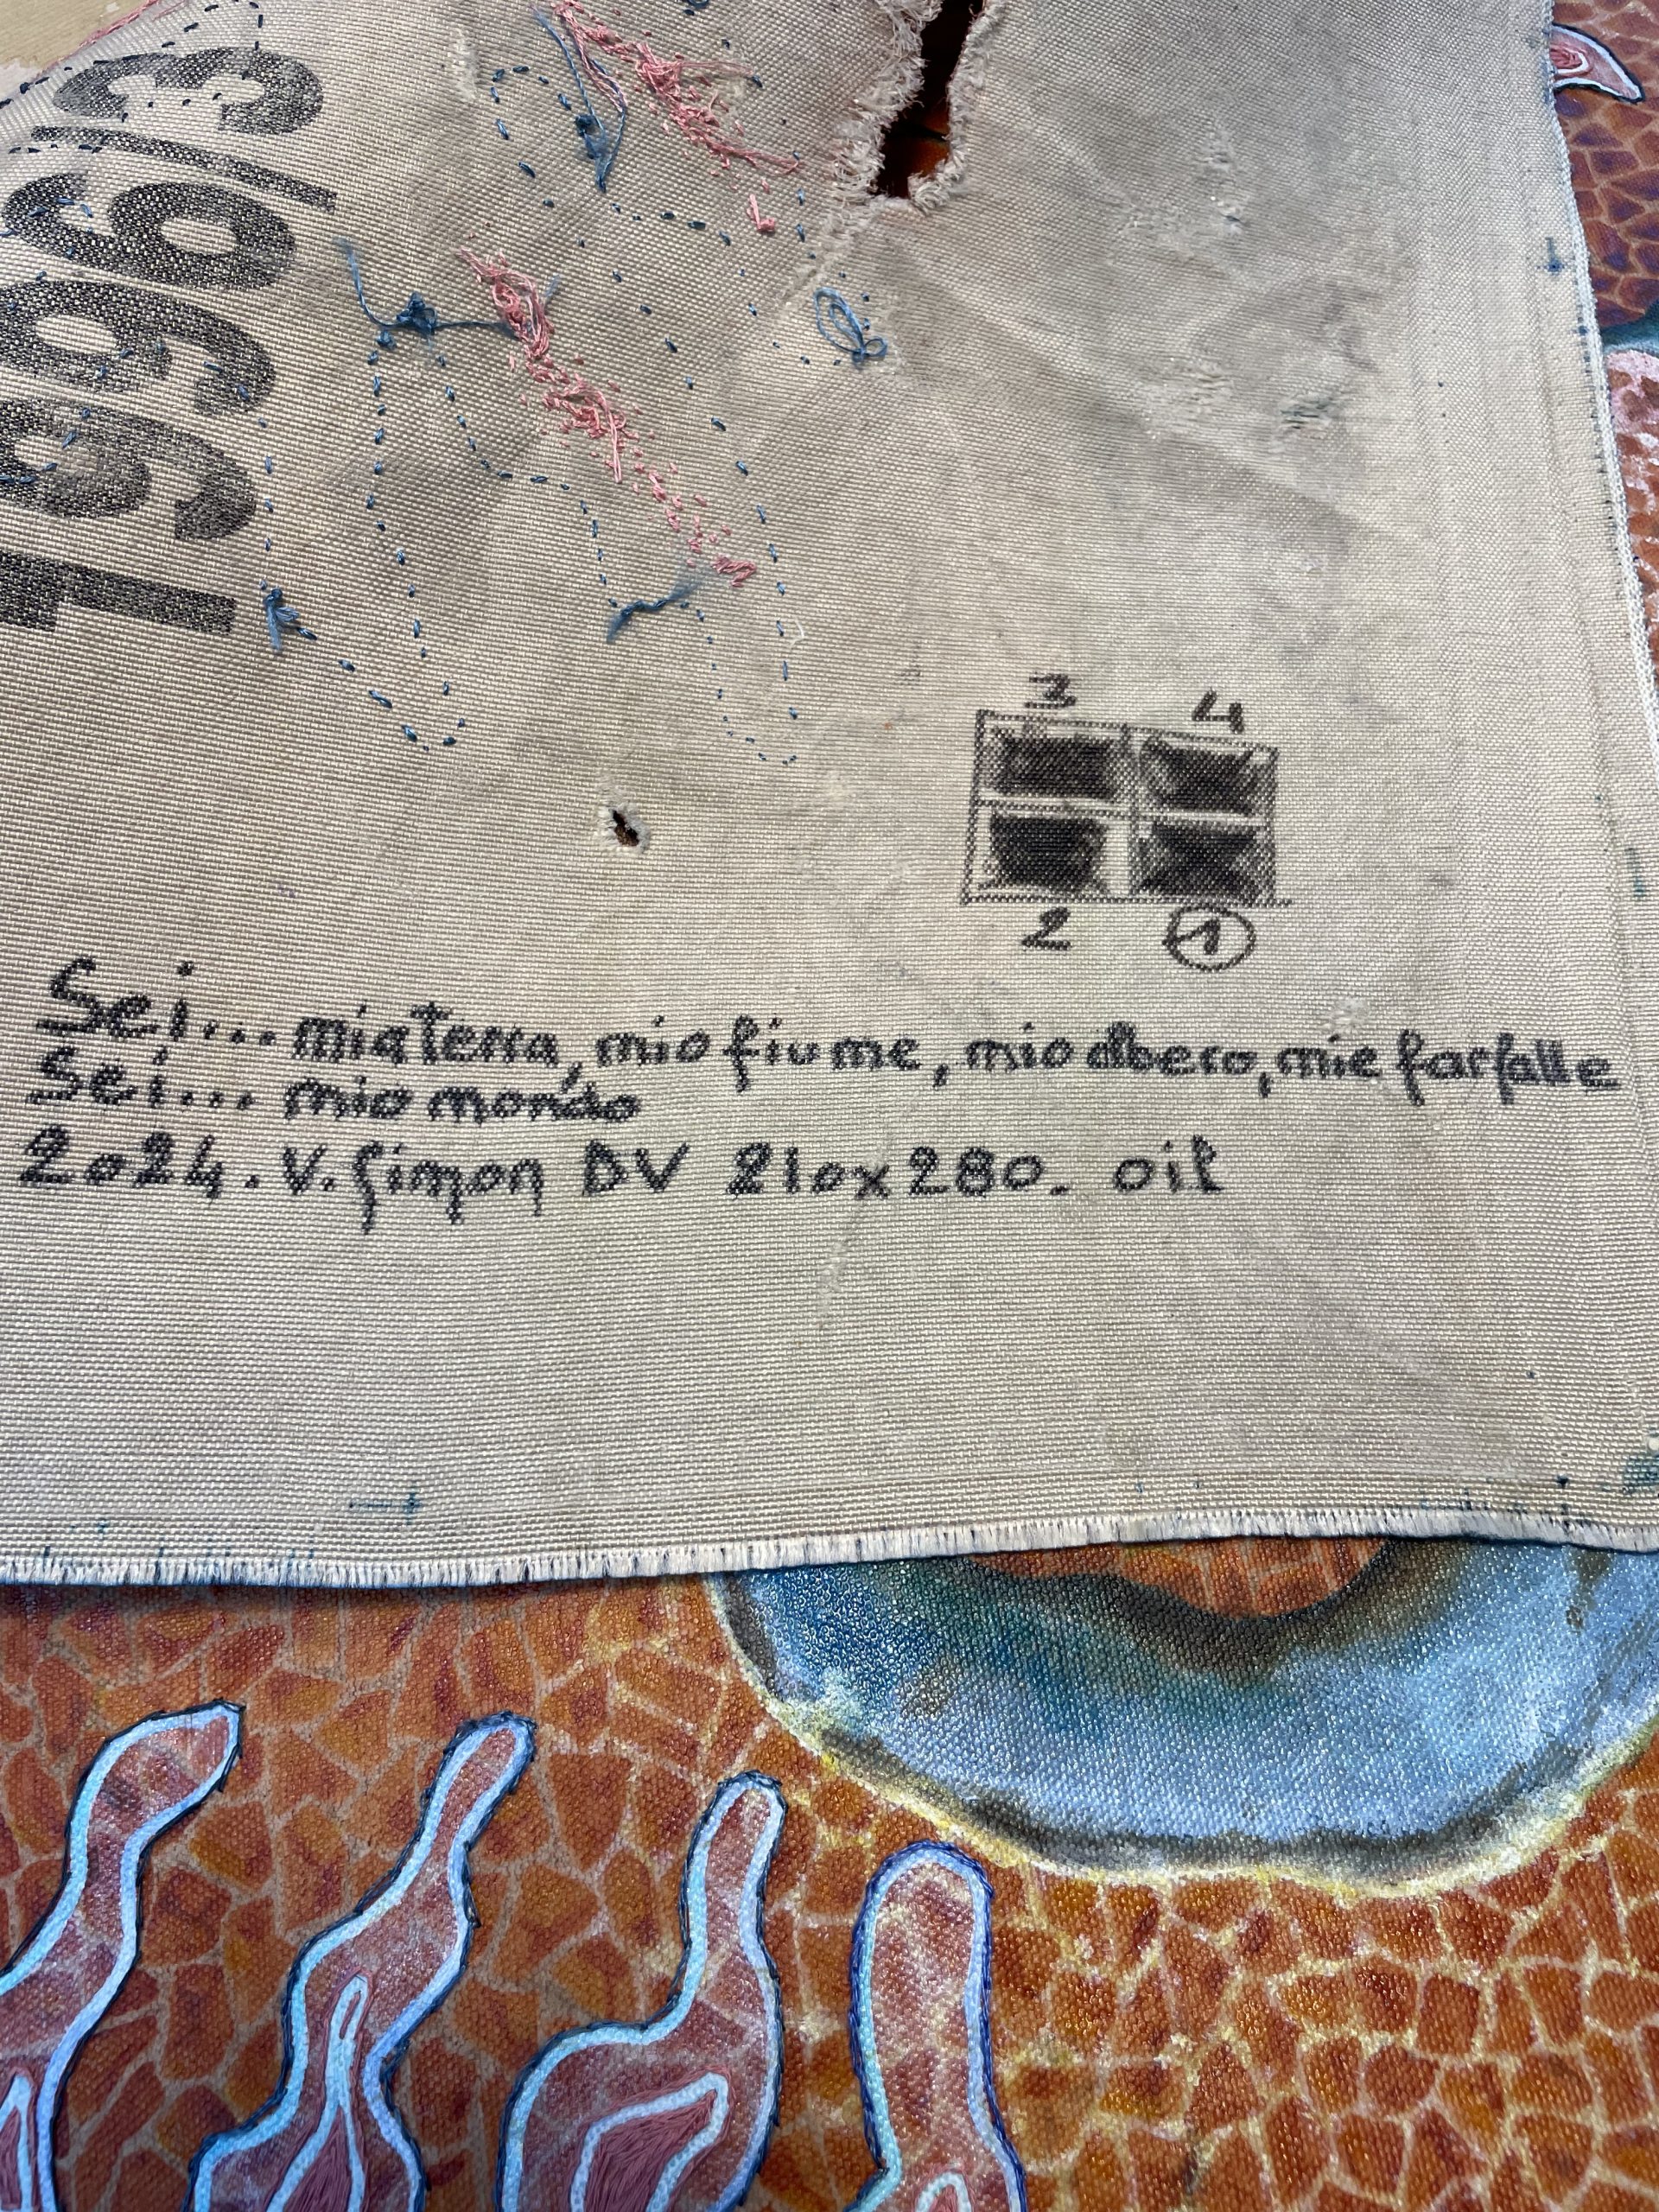 1996/3
3 4
2 1
Sei... mia terra, mio fiume, mio albero, mie farfalle
Sei... mio mondo
2024. V. Simon DV 210x280. oil